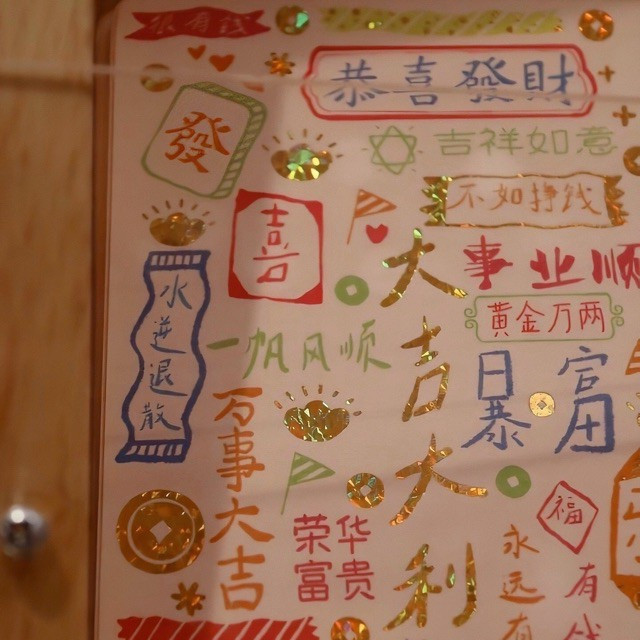 很有钱
恭喜發財
發
吉祥如意
不如挣钱
喜
大吉大利
事业顺
黄金万两
水逆退散
一帆风顺
暴富
日田
万事大吉
荣华
富贵
福
永远有
有钱